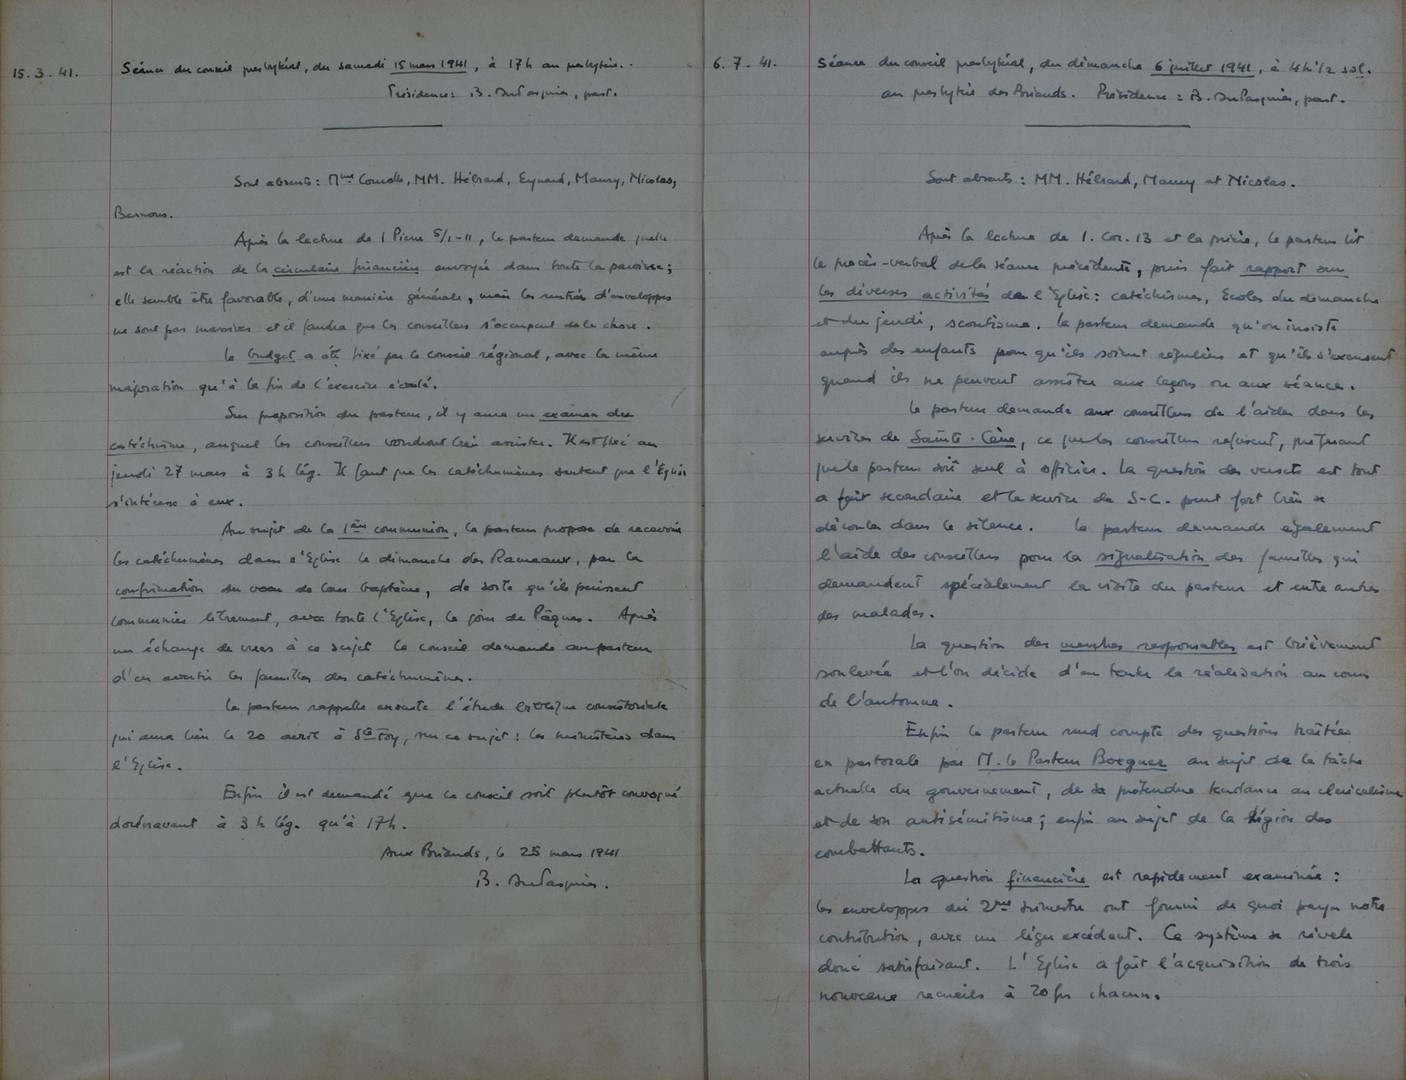 15. 3. 41.
Séance du conseil presbytéral, du samedi 15 mars 1941, à 17h au presbytère.
Présidence: B. DuPasquier, past.
Sont absents: Mme MM. Hébrard, Eynard, Maury, Nicolas,
Après la lecture de 1 Pierre 5/1-11, le pasteur demande quelle
est la réaction de la circulaire financière envoyée dans toute la paroisse;
elle semble être favorable, d'une manière générale, mais les rentrées d'enveloppes
ne sont pas massives et il faudra que les conseillers s'occupent de la chose.
Le budget a été fixé par le conseil régional, avec la même
majoration qu'à la fin de l'exercice écoulé.
Sur proposition du pasteur, il y aura un examen du
catéchisme, auquel les conseillers voudront bien assister. Il est fixé au
jeudi 27 mars à 3h lég. Il faut que les catéchumènes sentent que l'Eglise
s'intéresse à eux.
Au sujet de la 1ère communion, le pasteur propose de recevoir
les catéchumènes dans l'Eglise le dimanche des Rameaux, par la
confirmation du voeu de leur baptême, de sorte qu'ils puissent
communier librement, avec toute l'Eglise, le jour de Pâques. Après
un échange de vues à ce sujet le conseil demande au pasteur
d'en avertir les familles des catéchumènes.
Le pasteur rappelle ensuite l'étude biblique consistoriale
qui aura lieu le 20 avril à Ste Foy, sur ce sujet: les ministères dans
l'Eglise.
Enfin il est demandé que le conseil soit plutôt convoqué
dorénavant à 3h lég. qu'à 17h.
Aux Briands, le 25 mars 1941
B. DuPasquier.
6. 7. 41.
Séance du conseil presbytéral, du dimanche 6 juillet 1941, à 4h 1/2 sol.
au presbytère des Briands. Présidence: B. DuPasquier, past.
Sont absents: MM. Hébrard, Maury et Nicolas.
Après la lecture de 1. Cor. 13 et la prière, le pasteur lit
le procès-verbal de la séance précédente, puis fait rapport sur
les diverses activités de l'Eglise: catéchismes, Ecoles du dimanche
et du jeudi, scoutisme. Le pasteur demande qu'on insiste
auprès des enfants pour qu'ils soient réguliers et qu'ils s'excusent
quand ils ne peuvent assister aux leçons ou aux séances.
Le pasteur demande aux conseillers de l'aider dans les
services de Sainte-Cène, ce que les conseillers refusent, préférant
que le pasteur soit seul à officier. La question des versets est tout
a fait secondaire et le service de S-C. peut fort bien se
dérouler dans le silence. Le pasteur demande également
l'aide des conseillers pour la signalisation des familles qui
demandent spécialement la visite du pasteur et entre autres
des malades.
La question des membres responsables est brièvement
soulevée et l'on décide d'en tenter la réalisation au cours
de l'automne.
Enfin le pasteur rend compte des questions traitées
en pastorale par M. le Pasteur Boegner au sujet de la tâche
actuelle du gouvernement, de sa prétendue tendance au cléricalisme
et de son antisémitisme; enfin au sujet de la Légion des
combattants.
La question financière est rapidement examinée:
les enveloppes du 2me trimestre ont fourni de quoi payer notre
contribution, avec un léger excédent. Ce système se révèle
donc satisfaisant. L'Eglise a fait l'acquisition de trois
nouveaux recueils à 20 frs chacun.